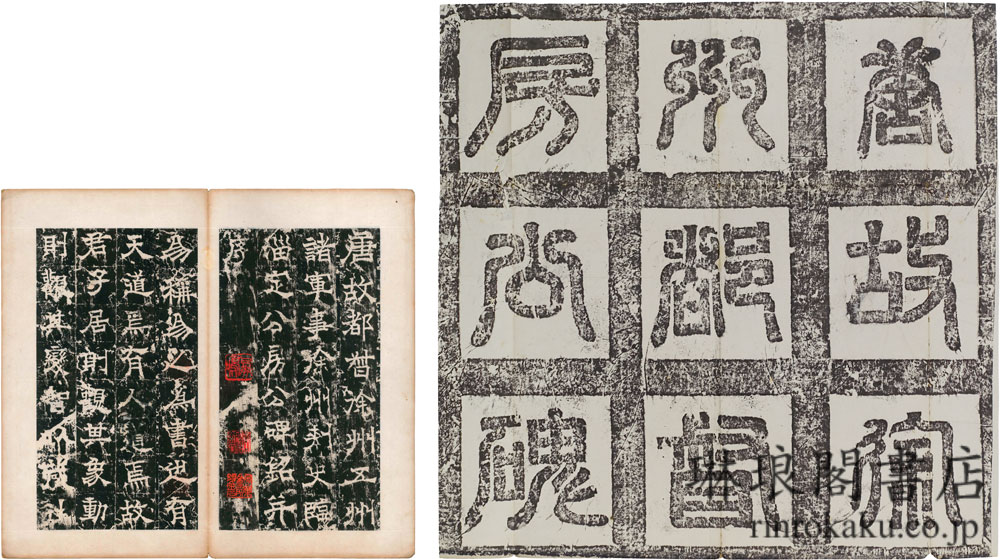 唐故徐
州都督
房公碑
唐故都督徐州五州
諸軍事徐州刺史臨
淄定公房公碑銘并
序
易稱易之為書也有
天道焉有人道焉故
君子居則觀其象動
則觀其變智以藏
琳琅閣書店
rinrokaku.co.jp